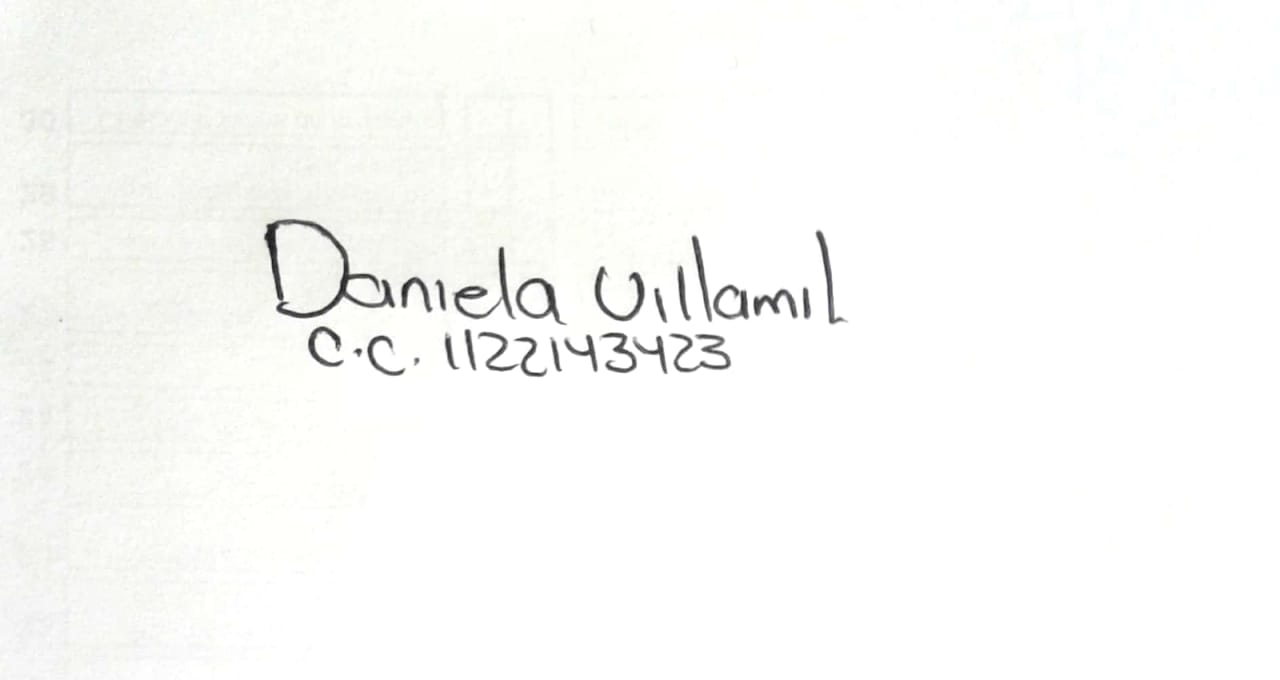 Daniela Villamil
C.C. 1122143423